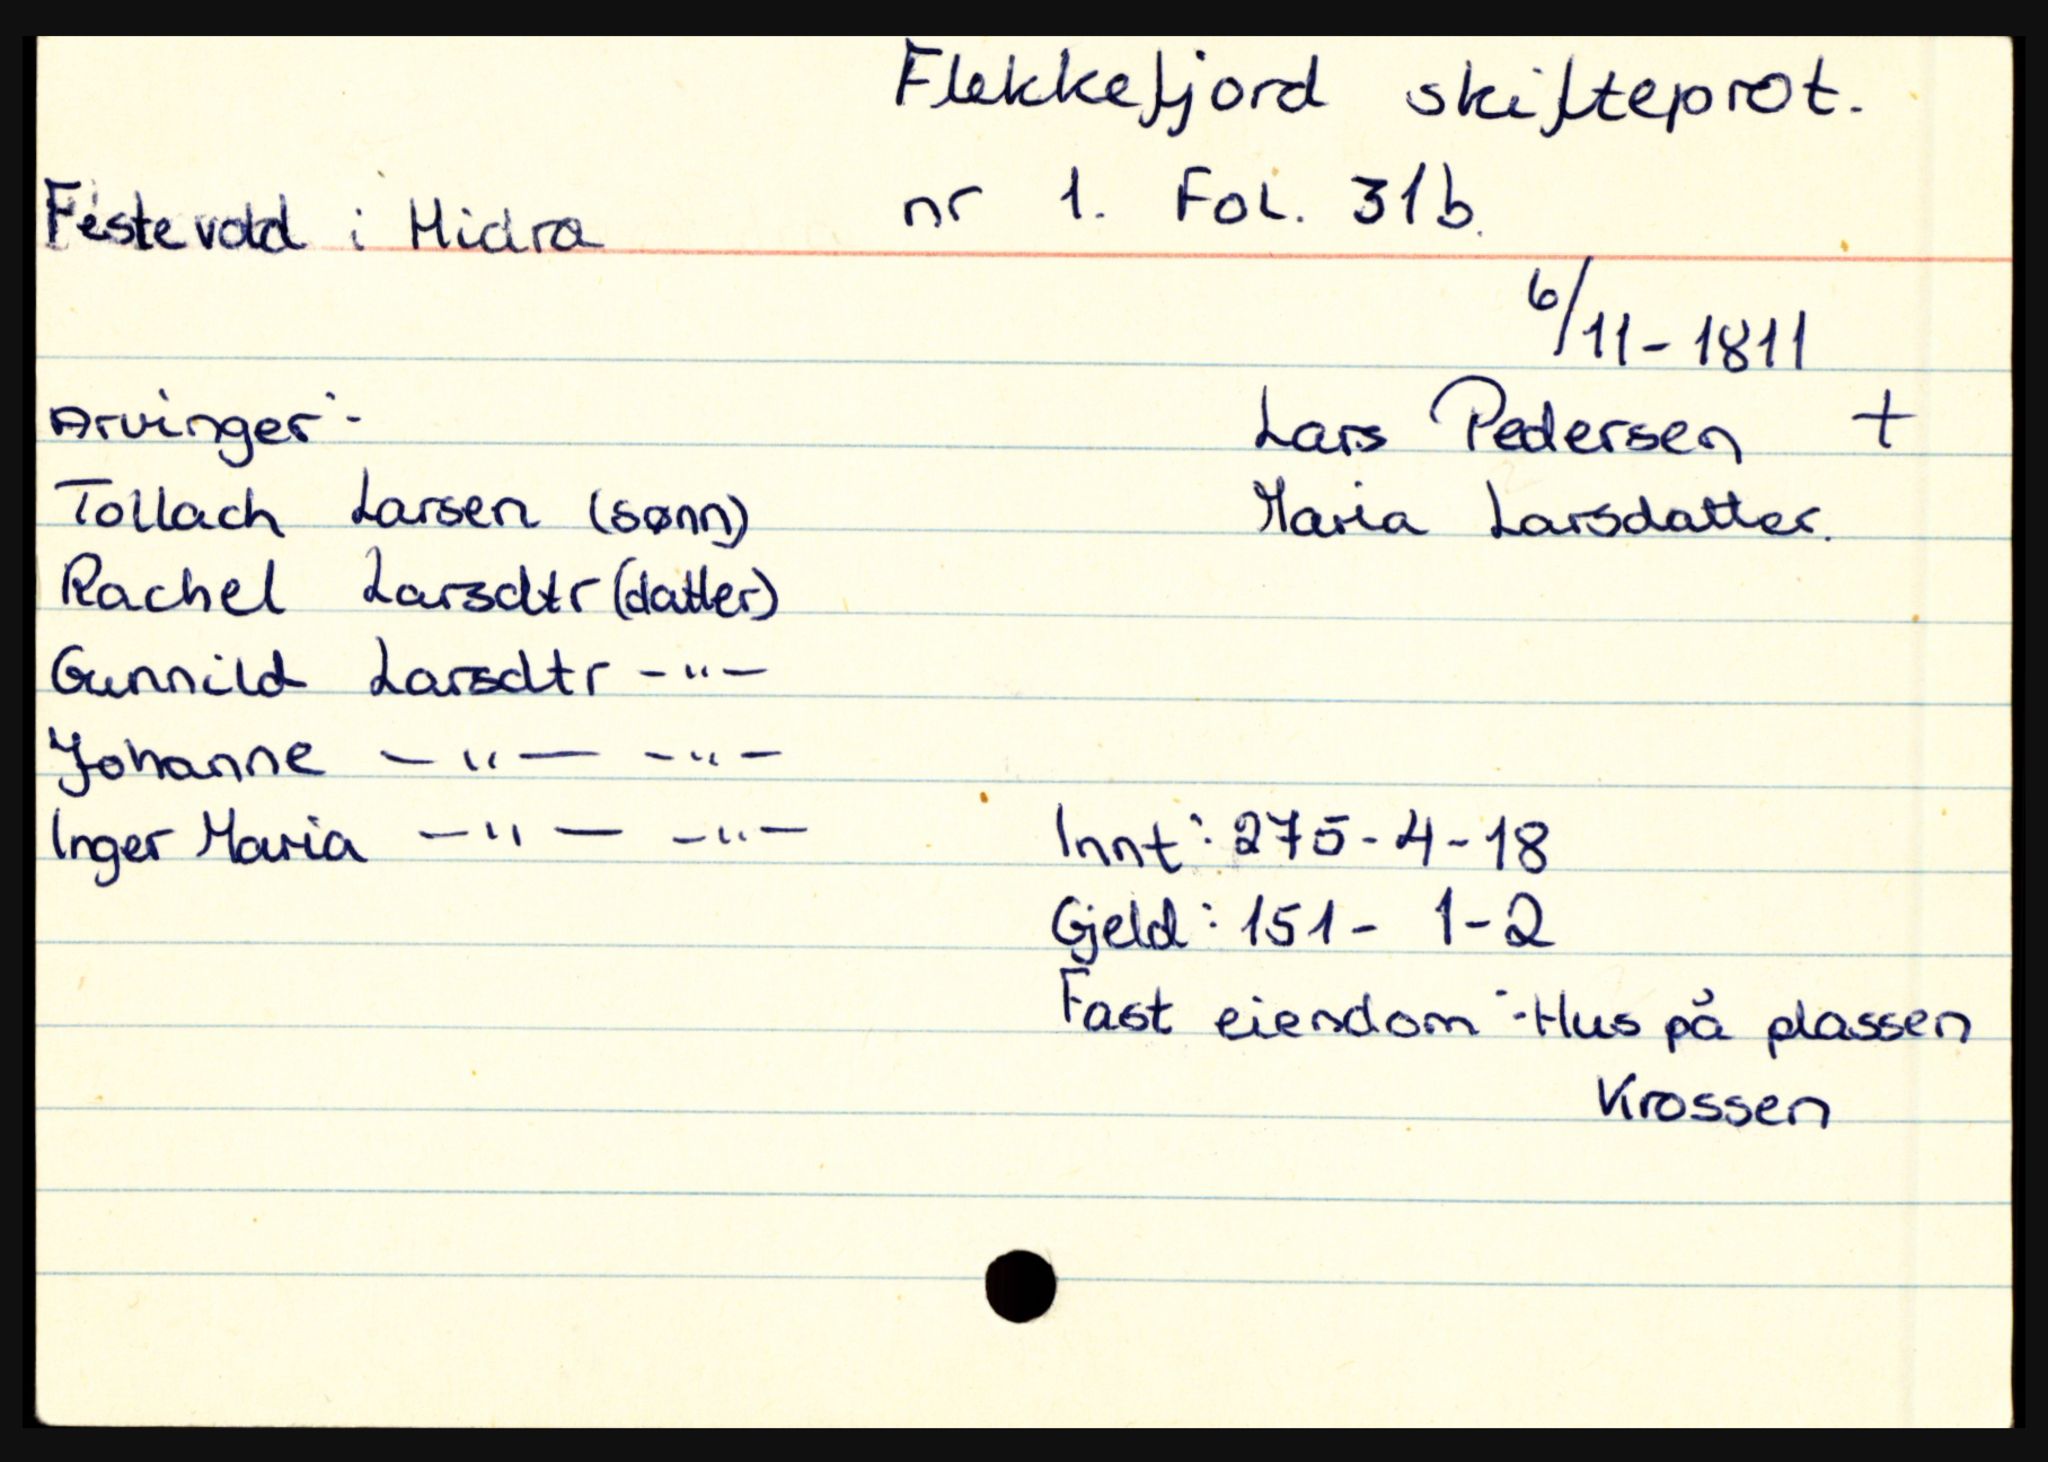 Flekkefjord skifteprot.
nr 1. Fol. 31b.
Festevold i Hidra
6/11-1811
Arvinger:-
Lars Pedersen +
Tollach Larsen (sønn)
Maria Larsdatter.
Rachel Larsdtr (datter)
Gunnild Larsdtr -"-
Johanne -"- -"-
Inger Maria -"- -"-
Innt: 275-4-18
Gjeld: 151- 1-2
Fast eiendom:-Hus på plassen
Krossen